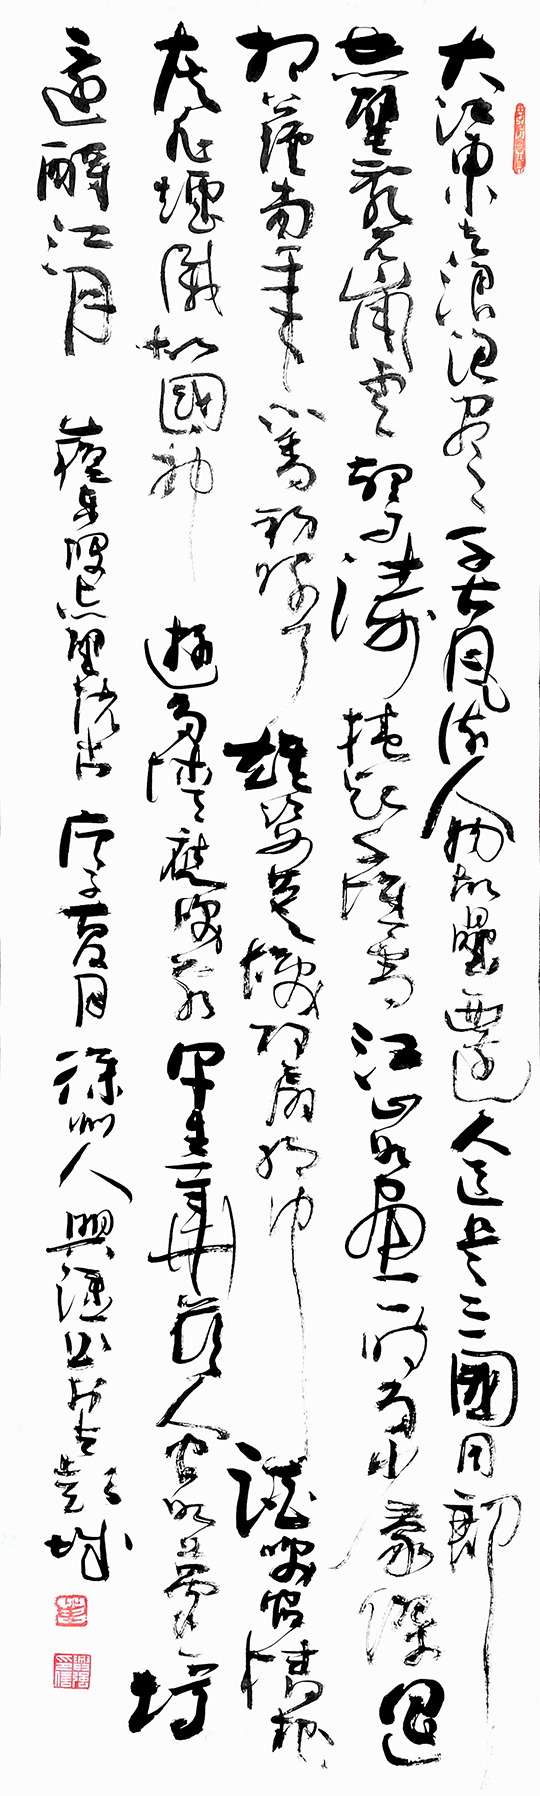 大江東去浪淘盡千古風流人物故壘西邊人道是三國周郎
赤壁亂石崩雲驚濤捲起千堆雪江山如畫一時多少豪傑遙
想公瑾當年小喬初嫁了雄姿英發羽扇綸巾談笑間檣櫓
灰飛煙滅故國神遊多情應笑我早生華髮人間如夢一尊
還酹江月 蘇東坡赤壁懷古 庚子夏月 徐州人興 書於古彭城